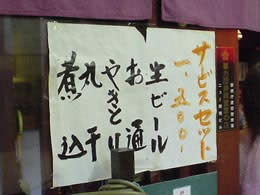 サービスセット
一、五〇〇-
生ビール
お通し
やきとり
丸干
煮込